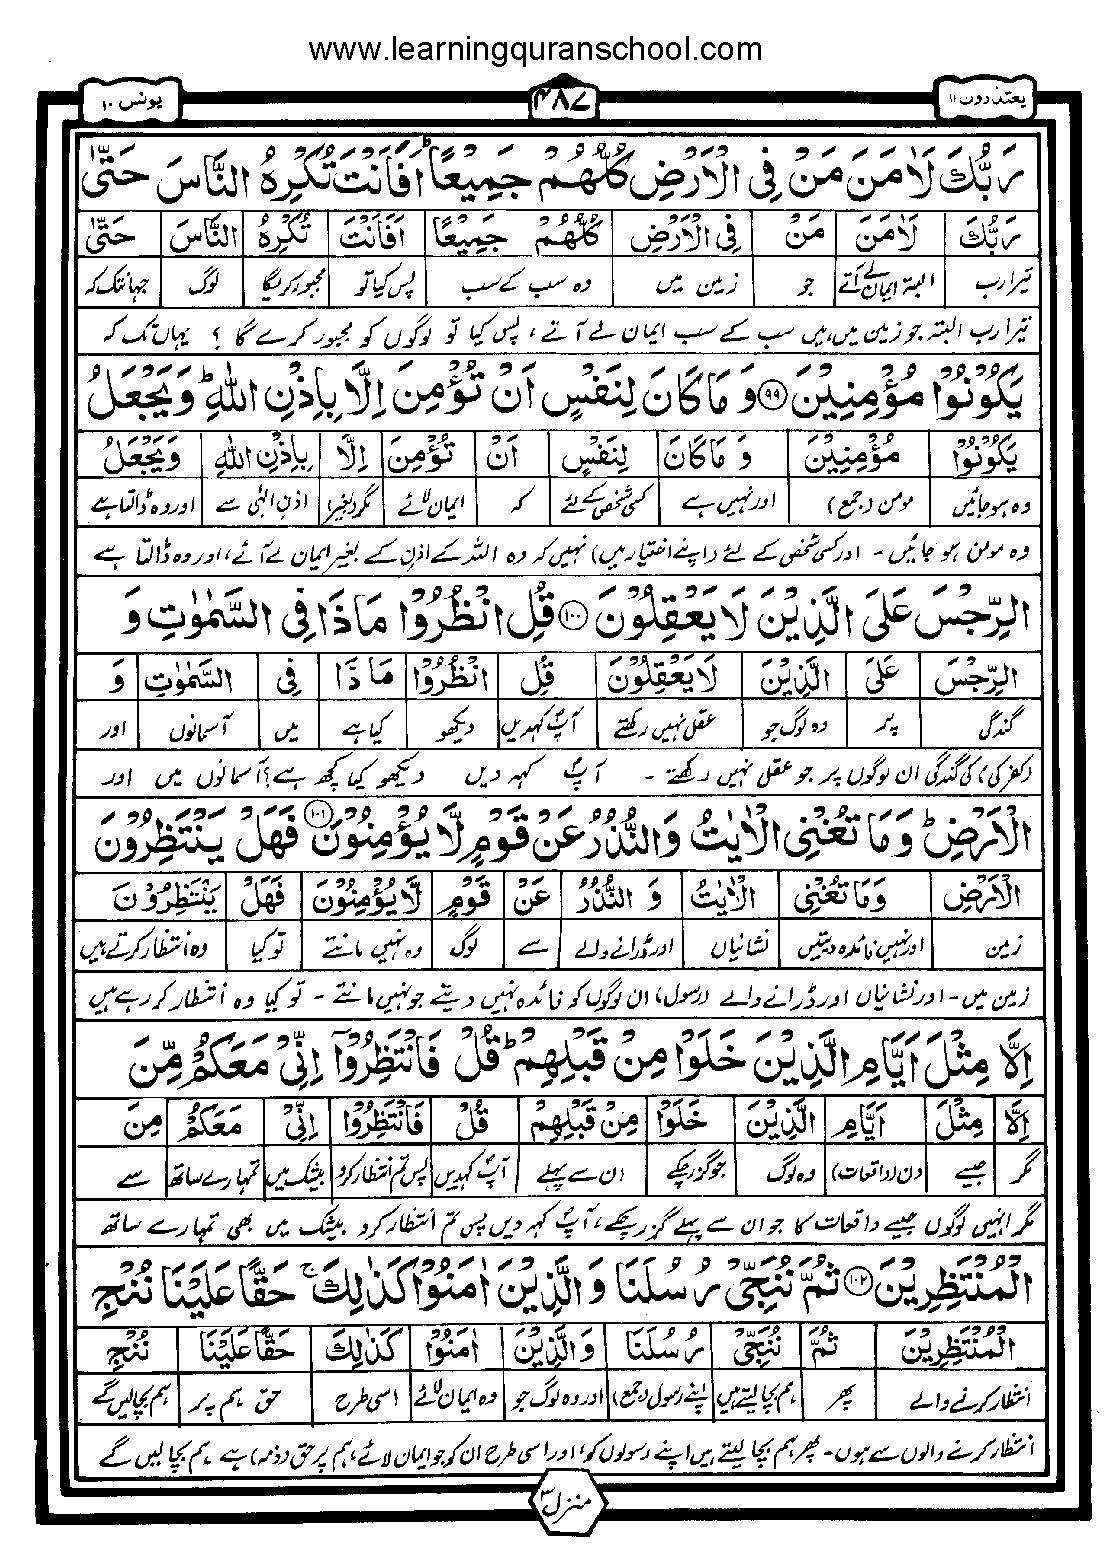 www.learningquranschool.com
یعتذرون ۱۱
۴۸۷
یونس ۱۰
رَبُّكَ لَاٰمَنَ مَنْ فِی الْاَرْضِ كُلُّهُمْ جَمِیْعًا ؕ اَفَاَنْتَ تُكْرِهُ النَّاسَ حَتّٰی
رَبُّكَ لَاٰمَنَ مَنْ فِی الْاَرْضِ كُلُّهُمْ جَمِیْعًا اَفَاَنْتَ تُكْرِهُ النَّاسَ حَتّٰی
تیرا رب البتہ ایمان لے آتے جو زمین میں وہ سب کے سب پس کیا تو مجبور کریگا لوگ جہانتک کہ
تیرا رب البتہ جو زمین میں ہیں سب کے سب ایمان لے آتے ، پس کیا تو لوگوں کو مجبور کرے گا ؟ یہاں تک کہ
یَكُوْنُوْا مُؤْمِنِیْنَ ۹۹ وَ مَا كَانَ لِنَفْسٍ اَنْ تُؤْمِنَ اِلَّا بِاِذْنِ اللّٰهِ ؕ وَ یَجْعَلُ
یَكُوْنُوْا مُؤْمِنِیْنَ وَ مَا كَانَ لِنَفْسٍ اَنْ تُؤْمِنَ اِلَّا بِاِذْنِ اللّٰهِ وَیَجْعَلُ
وہ ہو جائیں مومن (جمع) اور نہیں ہے کسی شخص کے لئے کہ ایمان لائے مگر (بغیر) اذنِ الٰہی سے اور وہ ڈالتا ہے
وہ مومن ہو جائیں - اور کسی شخص کے لئے (اپنے اختیار میں) نہیں کہ وہ اللہ کے اذن کے بغیر ایمان لے آئے، اور وہ ڈالتا ہے
الرِّجْسَ عَلَی الَّذِیْنَ لَا یَعْقِلُوْنَ ۱۰۰ قُلِ انْظُرُوْا مَاذَا فِی السَّمٰوٰتِ وَ
الرِّجْسَ عَلَی الَّذِیْنَ لَا یَعْقِلُوْنَ قُلِ انْظُرُوْا مَاذَا فِی السَّمٰوٰتِ وَ
گندگی پر وہ لوگ جو عقل نہیں رکھتے آپؐ کہدیں دیکھو کیا ہے میں آسمانوں اور
(کفر کی) گندگی ان لوگوں پر جو عقل نہیں رکھتے - آپؐ کہہ دیں دیکھو کیا کچھ ہے؟ آسمانوں میں اور
الْاَرْضِ ؕ وَ مَا تُغْنِی الْاٰیٰتُ وَالنُّذُرُ عَنْ قَوْمٍ لَّا یُؤْمِنُوْنَ ۱۰۱ فَهَلْ یَنْتَظِرُوْنَ
الْاَرْضِ وَمَا تُغْنِی الْاٰیٰتُ وَ النُّذُرُ عَنْ قَوْمٍ لَّا یُؤْمِنُوْنَ فَهَلْ یَنْتَظِرُوْنَ
زمین اور نہیں فائدہ دیتیں نشانیاں اور ڈرانے والے سے لوگ وہ نہیں مانتے تو کیا وہ انتظار کرتے ہیں
زمین میں - اور نشانیاں اور ڈرانے والے (رسول) ان لوگوں کو فائدہ نہیں دیتے جو نہیں مانتے - تو کیا وہ انتظار کر رہے ہیں
اِلَّا مِثْلَ اَیَّامِ الَّذِیْنَ خَلَوْا مِنْ قَبْلِهِمْ ؕ قُلْ فَانْتَظِرُوْۤا اِنِّیْ مَعَكُمْ مِّنَ
اِلَّا مِثْلَ اَیَّامِ الَّذِیْنَ خَلَوْا مِنْ قَبْلِهِمْ قُلْ فَانْتَظِرُوْا اِنِّیْ مَعَكُمْ مِنَ
مگر جیسے دن (واقعات) وہ لوگ جو گزر چکے ان سے پہلے آپؐ کہدیں پس تم انتظار کرو بیشک میں تمہارے ساتھ سے
مگر انہیں لوگوں جیسے واقعات کا جو ان سے پہلے گزر چکے، آپؐ کہہ دیں پس تم انتظار کرو بیشک میں بھی تمہارے ساتھ
الْمُنْتَظِرِیْنَ ۱۰۲ ثُمَّ نُنَجِّیْ رُسُلَنَا وَ الَّذِیْنَ اٰمَنُوْا كَذٰلِكَ ۚ حَقًّا عَلَیْنَا نُنْجِ
الْمُنْتَظِرِیْنَ ثُمَّ نُنَجِّیْ رُسُلَنَا وَالَّذِیْنَ اٰمَنُوْا كَذٰلِكَ حَقًّا عَلَیْنَا نُنْجِ
انتظار کرنے والے پھر ہم بچا لیتے ہیں اپنے رسول (جمع) اور وہ لوگ جو وہ ایمان لائے اسی طرح حق ہم پر ہم بچالیں گے
انتظار کرنے والوں سے ہوں - پھر ہم بچا لیتے ہیں اپنے رسولوں کو، اور اسی طرح ان کو جو ایمان لائے، ہم پر حق (ذمہ) ہے ہم بچا لیں گے
منزل ۳